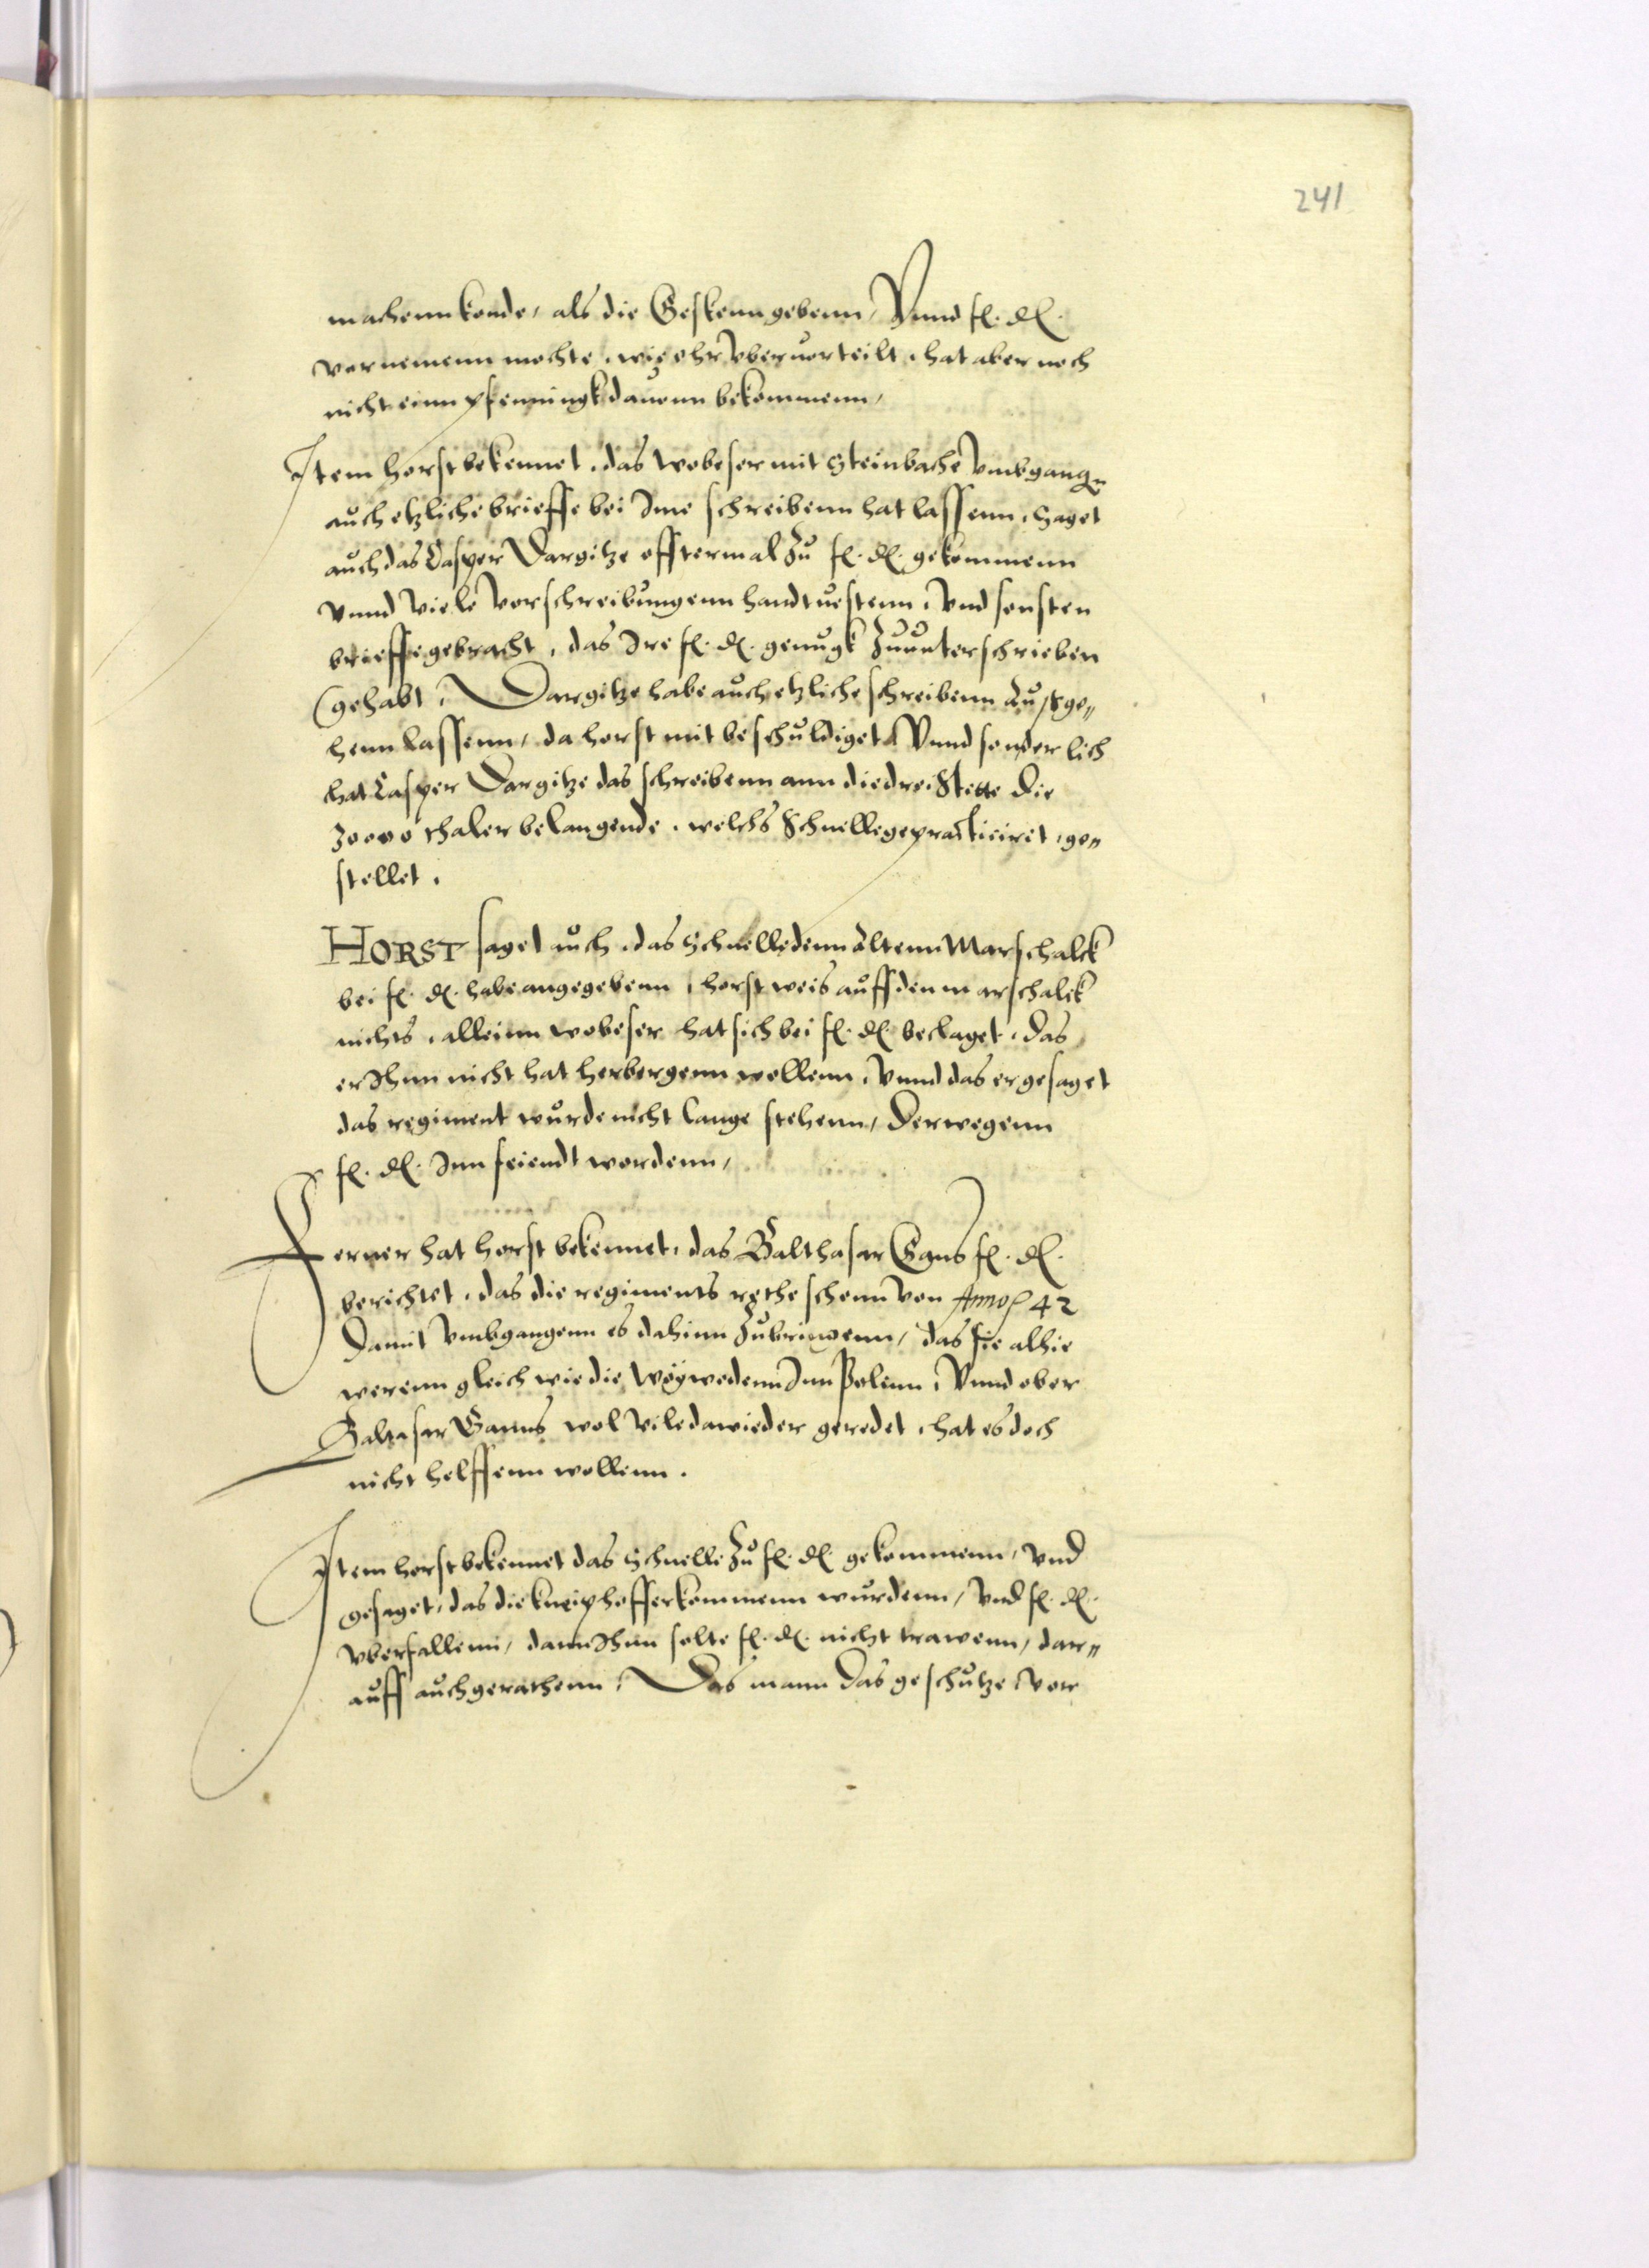 241
machenn konde, als die Geskenn gebenn, Vnnd fl. dl.
vornemenn mochte, wie ehr vberuorteilt, hat aber noch
nicht einn pfenningk dauonn bekommenn,
Item horst bekennet, das wobeser mit Steinbache vmbgangn
auch etzliche brieffe bei Ime schreibenn hat lassenn, Saget
auch das Casper Dargitze offtermal Zu fl. dl. gekommenn
vnnd viele vorschreibungenn handtuestenn, vnd sonsten
brieffe gebracht, das Ire fl. dl. genugk Zuunterschrieben
gehabt, Dargitze habe auch etzliche schreibenn Aussge„
henn lassenn, da horst mit beschuldiget, Vnnd sonderlich
hat Casper Dargitze das schreibenn ann die drei Stette die
30000 thaler belangende, welchs Schnelle gepracticiret, ge„
stellet.
HORST saget auch, das Schnelle denn Altenn Marschalck
bei fl. dl. habe angegebenn, horst weis auff den marschalck
nichts, alleinn wobeser hat sich bei fl. dl. beclaget, das
er Ihnn nicht hat herbergenn wollenn, vnnd das er gesaget
das regiment wurde nicht lange stehenn, derwegenn
fl. dl. Inn feiendt wordenn,
Ferner hat horst bekennet, das Balthasar Gans fl. dl.
berichtet, das die regiments rethe schonn von Anno 42
damit vmbgangenn es dahinn Zubringenn, das sie alhie
werenn gleich wie die woywodenn Inn Polenn, Vnnd ober
Baltasar Ganns wol vile dawieder geredet, hat es doch
nicht helffenn wollenn.
Item horst bekennet das Schnelle Zu fl. dl. gekommenn, vnd
gesaget, das die kneiphoffer kommenn wurdenn, vnd fl. dl.
vberfallenn, dann Ihnn solte fl. dl. nicht trawenn, dar„
auff auch gerathenn, Das mann das geschutze vor